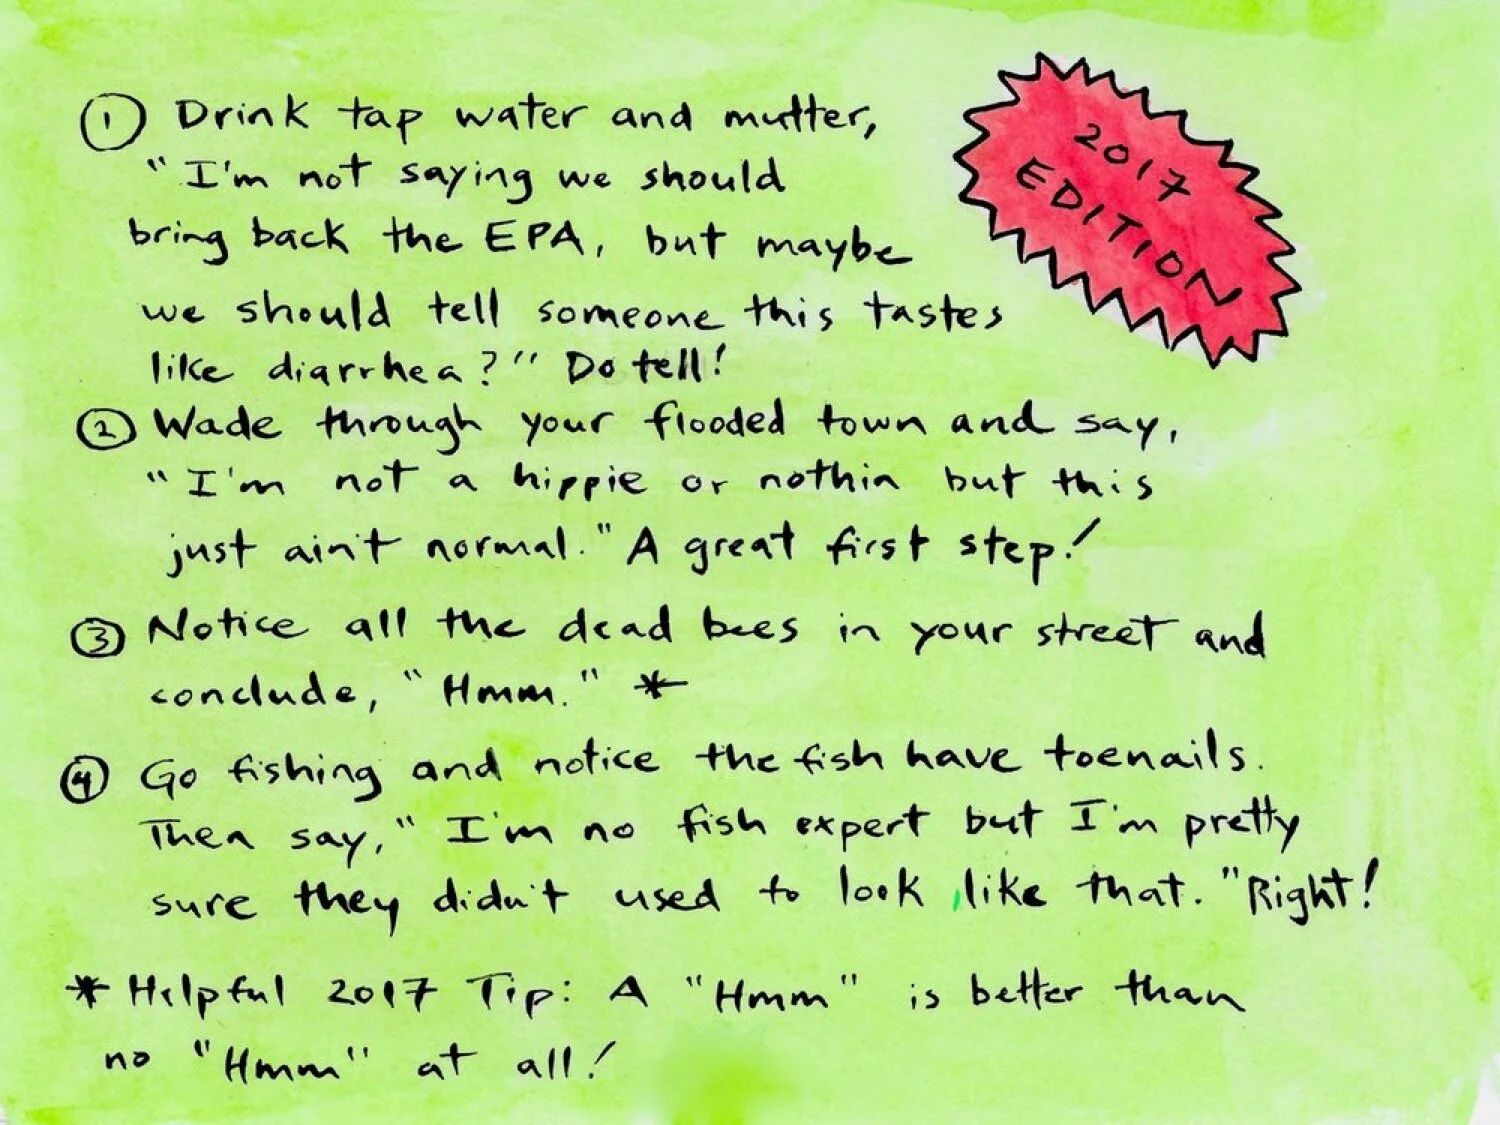 ① Drink tap water and mutter,
"I'm not saying we should
bring back the EPA, but maybe
we should tell someone this tastes
like diarrhea?" Do tell!
② Wade through your flooded town and say,
"I'm not a hippie or nothin but this
just ain't normal." A great first step!
③ Notice all the dead bees in your street and
conclude, "Hmm." *
④ Go fishing and notice the fish have toenails.
Then say, "I'm no fish expert but I'm pretty
sure they didn't used to look like that." Right!
* Helpful 2017 Tip: A "Hmm" is better than
no "Hmm" at all!
2017
EDITION